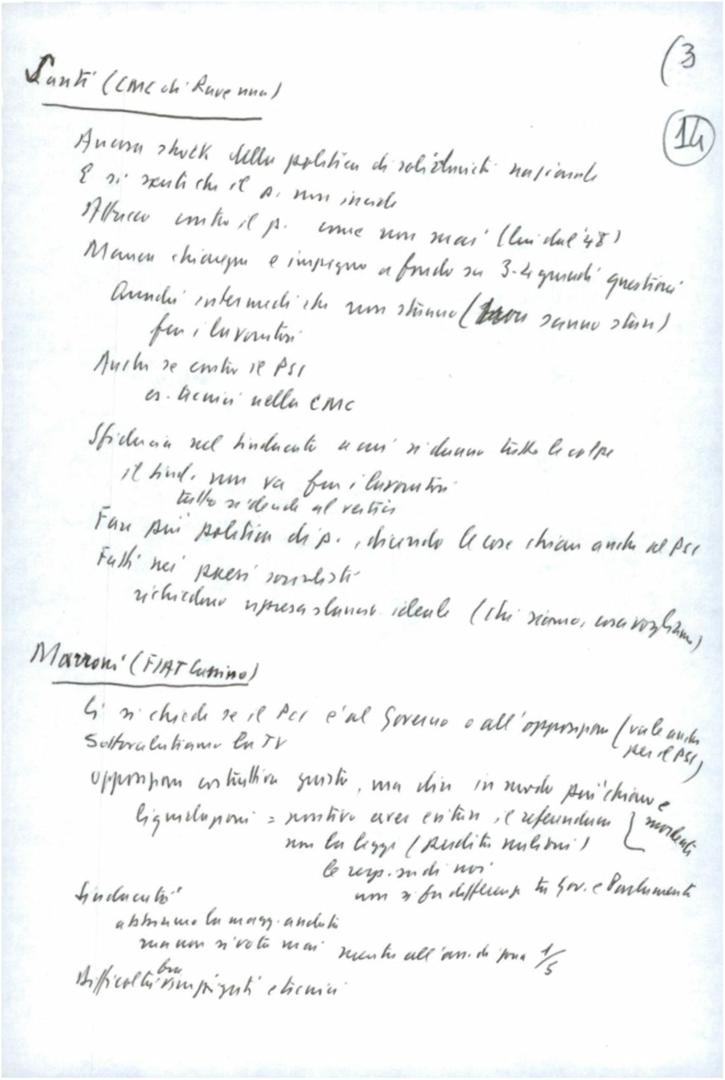 (3
14
Santi (CMC di Ravenna)
Ancora shock della politica di solidarietà nazionale
E si senti che il p. non incide
Attacco contro il p. come non mai (lui dal '48)
Manca chiarezza e impegno a fondo su 3-4 grandi questioni
Quadri intermedi che non stanno ( sanno stare)
fra i lavoratori
Anche se contro il PSI
es. tecnici nella CMC
Sfiducia nel sindacato a cui si danno tutte le colpe
il sind. non va fra i lavoratori
tutto si decide al vertice
Fare più politica di p., dicendo le cose chiare anche al PSI
Fatti nei paesi socialisti
richiedono ripresa slancio ideale (chi siamo, cosa vogliamo)
Marroni (FIAT Cassino)
Ci si chiede se il PCI è al Governo o all'opposizione (vale anche
per il PSI)
Sottovalutiamo la TV
Opposizione costruttiva giusta, ma dire in modo più chiaro e
liquidazioni = positivo aver evitare il referendum
non la legge (perdita milioni)
le resp. su di noi
non si fa differenza tra Gov. e Parlamento
Sindacati
abbiamo la magg. andati
ma non si vota mai mentre all' di zona 1/5
Difficoltà tra impiegati e tecnici